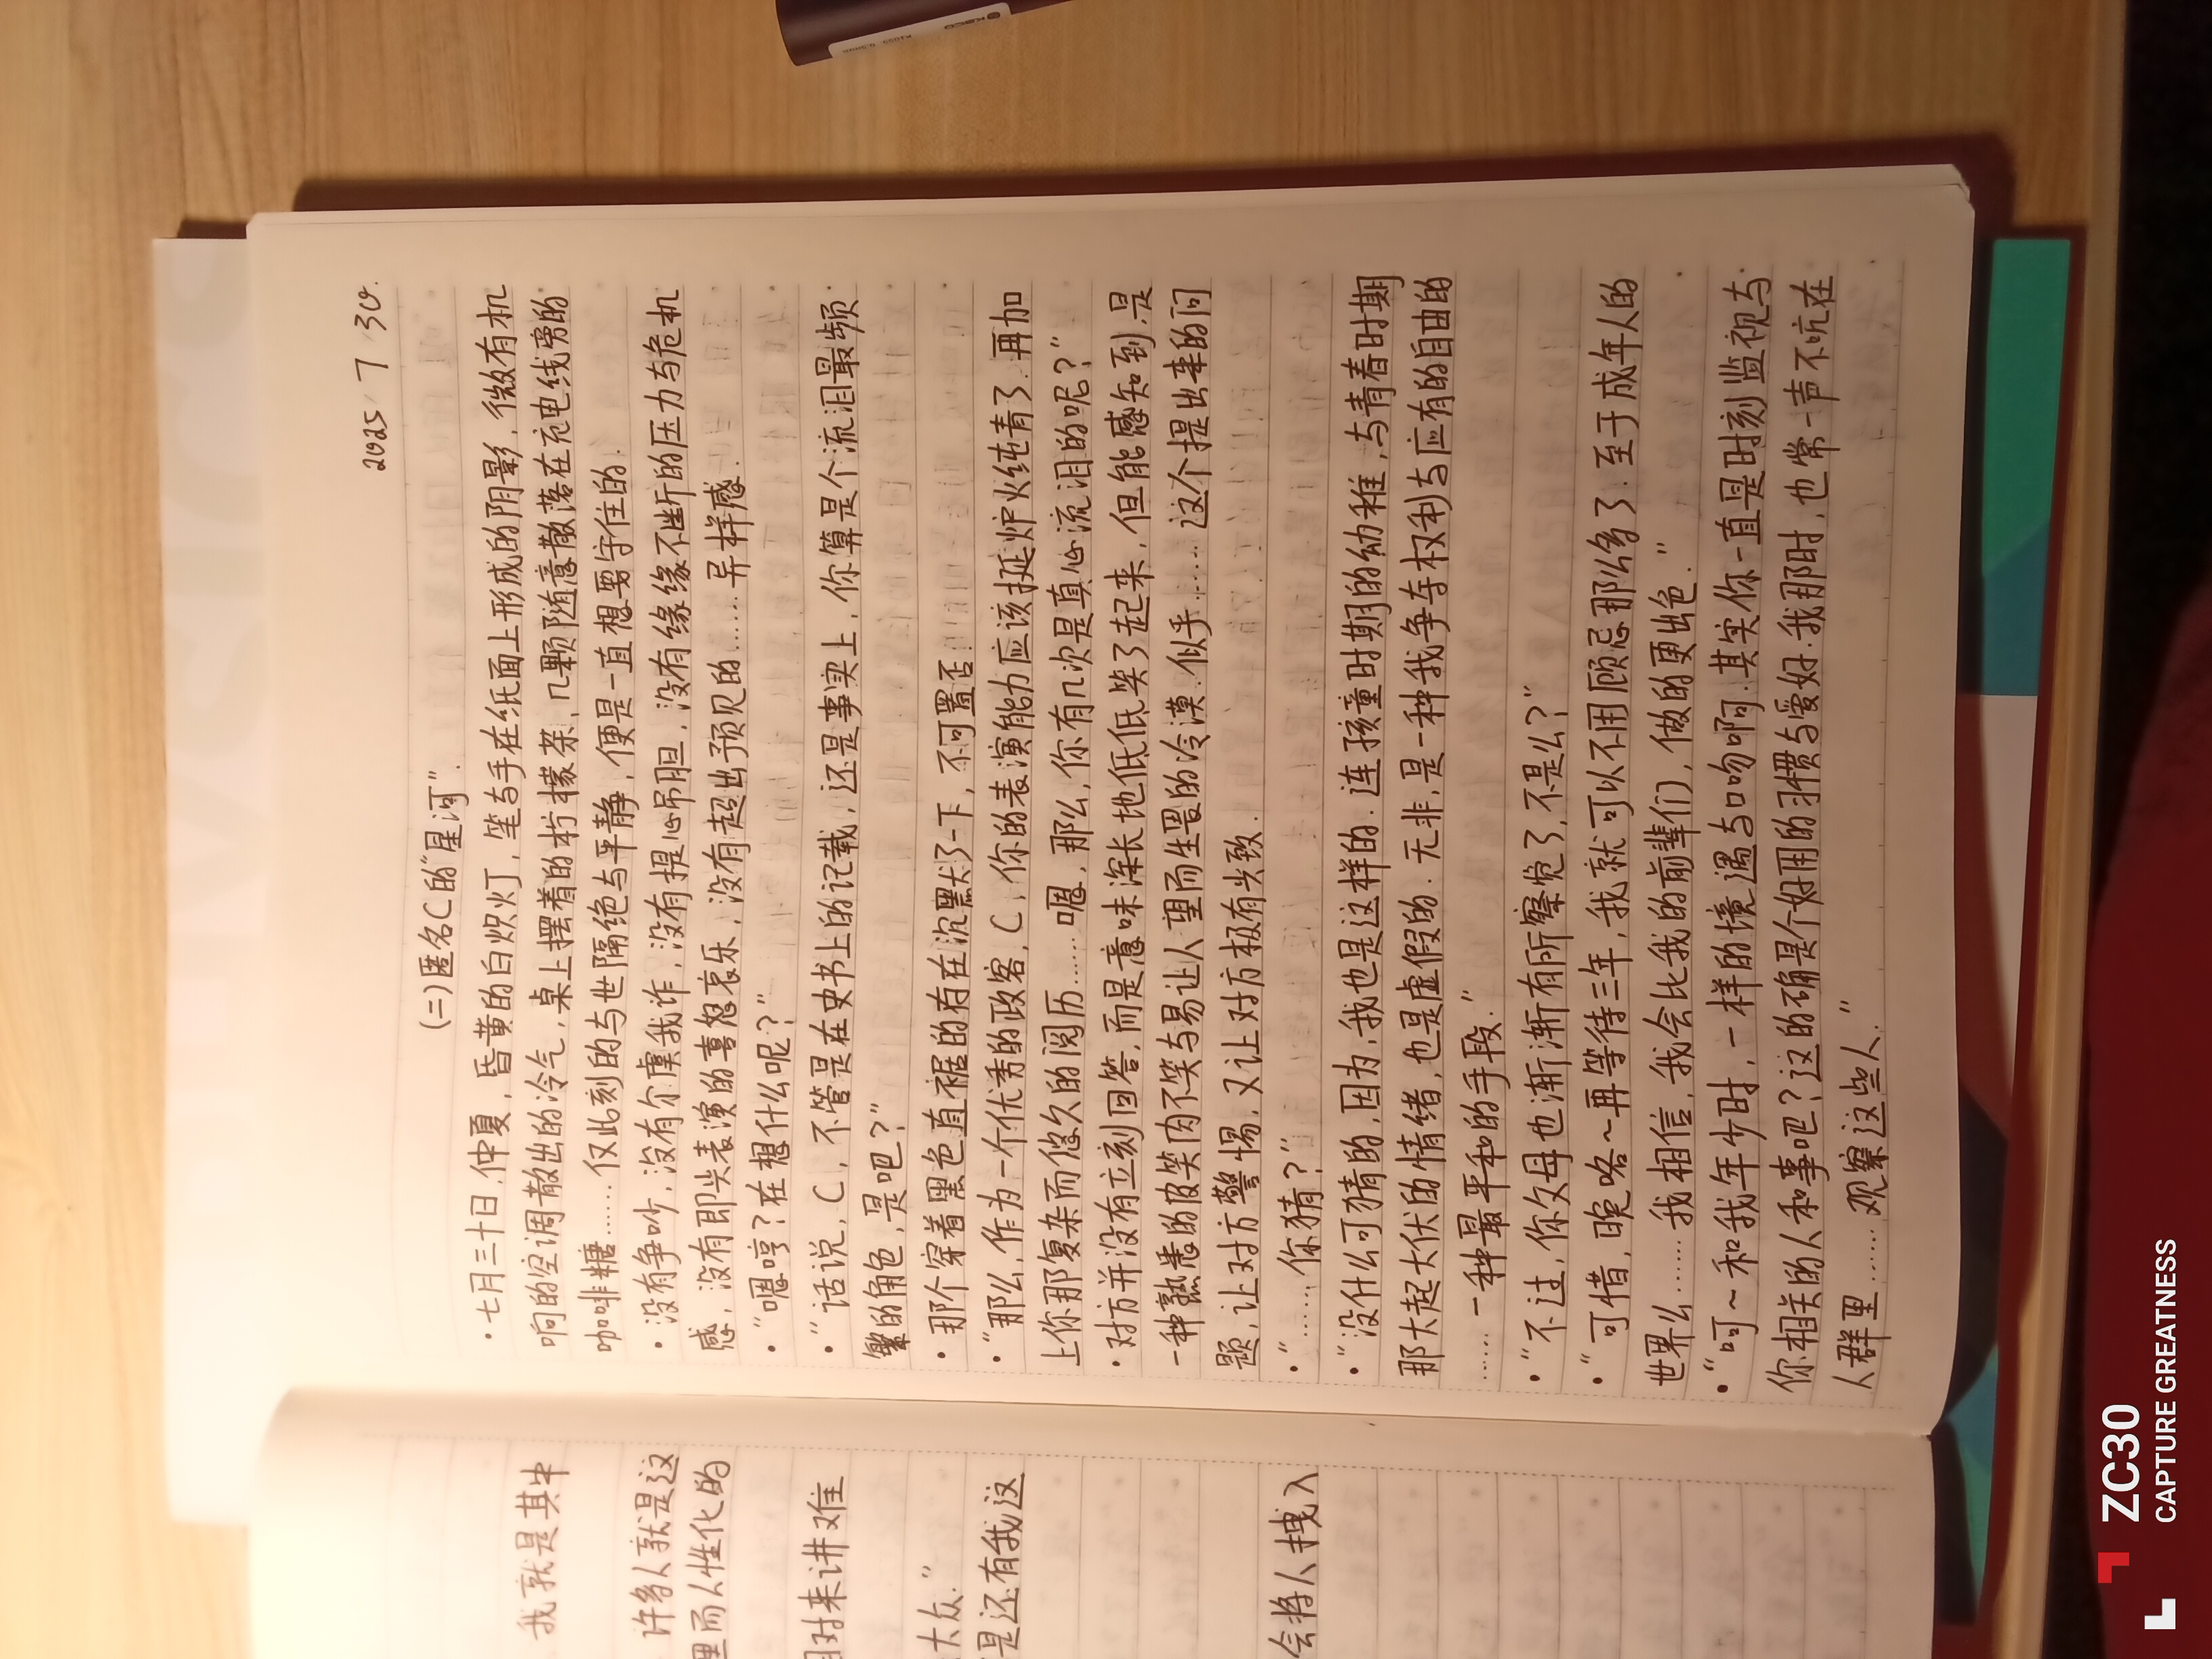 2025/7/30.
(二)匿名C的“星河”.
·七月三十日,仲夏,昏黄的白炽灯,笔与手在纸面上形成的阴影,微有机
响的空调散出的冷气,桌上摆着的柠檬茶,几颗随意散落在充电线旁的
咖啡糖……仅此刻的与世隔绝与平静,便是一直想要守住的.
·没有争吵,没有尔虞我诈,没有提心吊胆,没有缘缘不断的压力与危机
感,没有即兴表演的喜怒哀乐,没有超出预见的……异样感.
·“嗯哼?在想什么呢?”
·“话说,C,不管是在史书上的记载,还是事实上,你算是个流泪最频
繁的角色,是吧?”
·那个穿着黑色直裾的存在沉默了一下,不可置否.
·“那么,作为一个优秀的政客,C,你的表演能力应该挺炉火纯青了.再加
上你那复杂而悠久的阅历……嗯,那么,你有几次是真心流泪的呢?”
·对方并没有立刻回答,而是意味深长地低低笑了起来,但能感知到,是
一种熟悉的皮笑肉不笑与易让人望而生畏的冷漠.似乎……这个提出来的问
题,让对方警惕,又让对方极有兴致.
·“……你猜?”
·“没什么可猜的,因为,我也是这样的.连孩童时期的幼稚,与青春时期
那大起大伏的情绪,也是虚假的.无非,是一种我争夺权利与应有的自由的
……一种最平和的手段.”
·“不过,你父母也渐渐有所察觉了,不是么?”
·“可惜,晚咯~再等待三年,我就可以不用顾忌那么多了.至于成年人的
世界么……我相信,我会比我的前辈们,做的更出色.”
·“呵~和我年少时,一样的境遇与口吻啊.其实你一直是时刻监视与
你相关的人和事吧?这的确是个好用的习惯与爱好.我那时,也常一声不吭在
人群里……观察这些人.”
我就是其中
许多人就是这
里而人性化的
相对来讲难
大众.”
是还有我这
会将人拽入
ZC30
CAPTURE GREATNESS